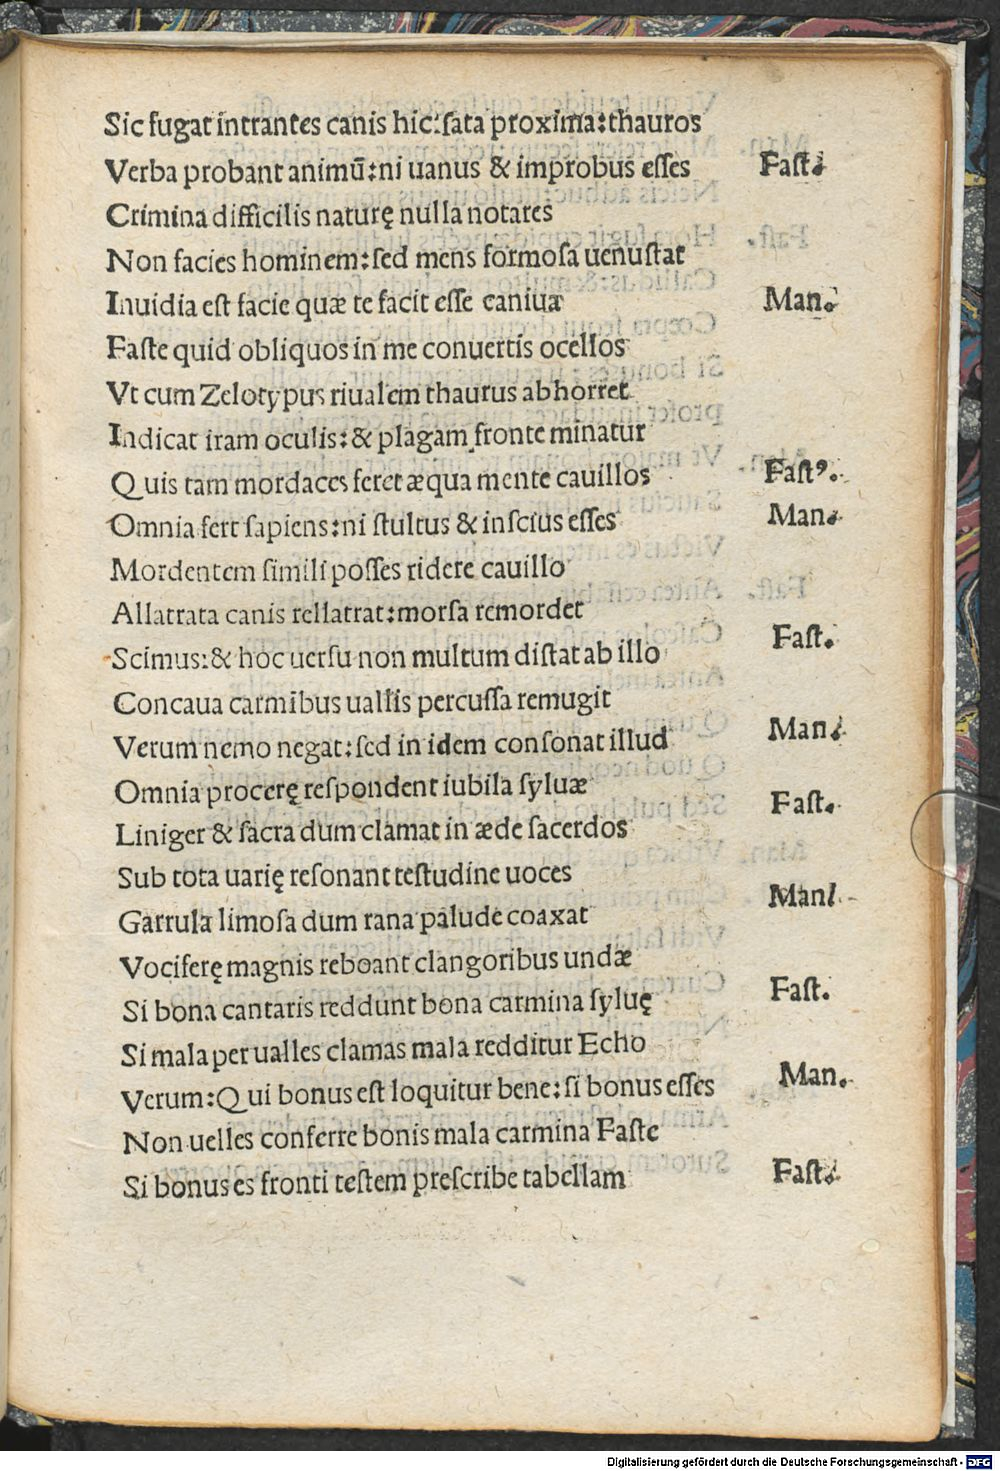 Sic fugat intrantes canis hic:sata proxima:thauros
Verba probant animū:ni uanus & improbus esses Fast.
Crimina difficilis naturę nulla notares
Non facies hominem:sed mens formosa uenustat
Inuidia est facie quæ te facit esse caniua Man.
Faste quid obliquos in me conuertis ocellos
Vt cum Zelotypus riualem thaurus abhorret
Indicat iram oculis:& plagam fronte minatur
Quis tam mordaces feret æqua mente cauillos Fastꝰ.
Omnia fert sapiens:ni stultus & inscius esses Man.
Mordentem simili posses ridere cauillo
Allatrata canis rellatrat:morsa remordet
Scimus:& hoc uersu non multum distat ab illo Fast.
Concaua carmibus uallis percussa remugit
Verum nemo negat:sed in idem consonat illud Man.
Omnia procerę respondent iubila syluæ
Liniger & sacra dum clamat in æde sacerdos Fast.
Sub tota uarię resonant testudine uoces
Garrula limosa dum rana palude coaxat Man.
Vociferę magnis reboant clangoribus undæ
Si bona cantaris reddunt bona carmina syluę Fast.
Si mala per ualles clamas mala redditur Echo
Verum:Qui bonus est loquitur bene:si bonus esses Man.
Non uelles conferre bonis mala carmina Faste
Si bonus es fronti testem prescribe tabellam Fast.
Digitalisierung gefördert durch die Deutsche Forschungsgemeinschaft - DFG